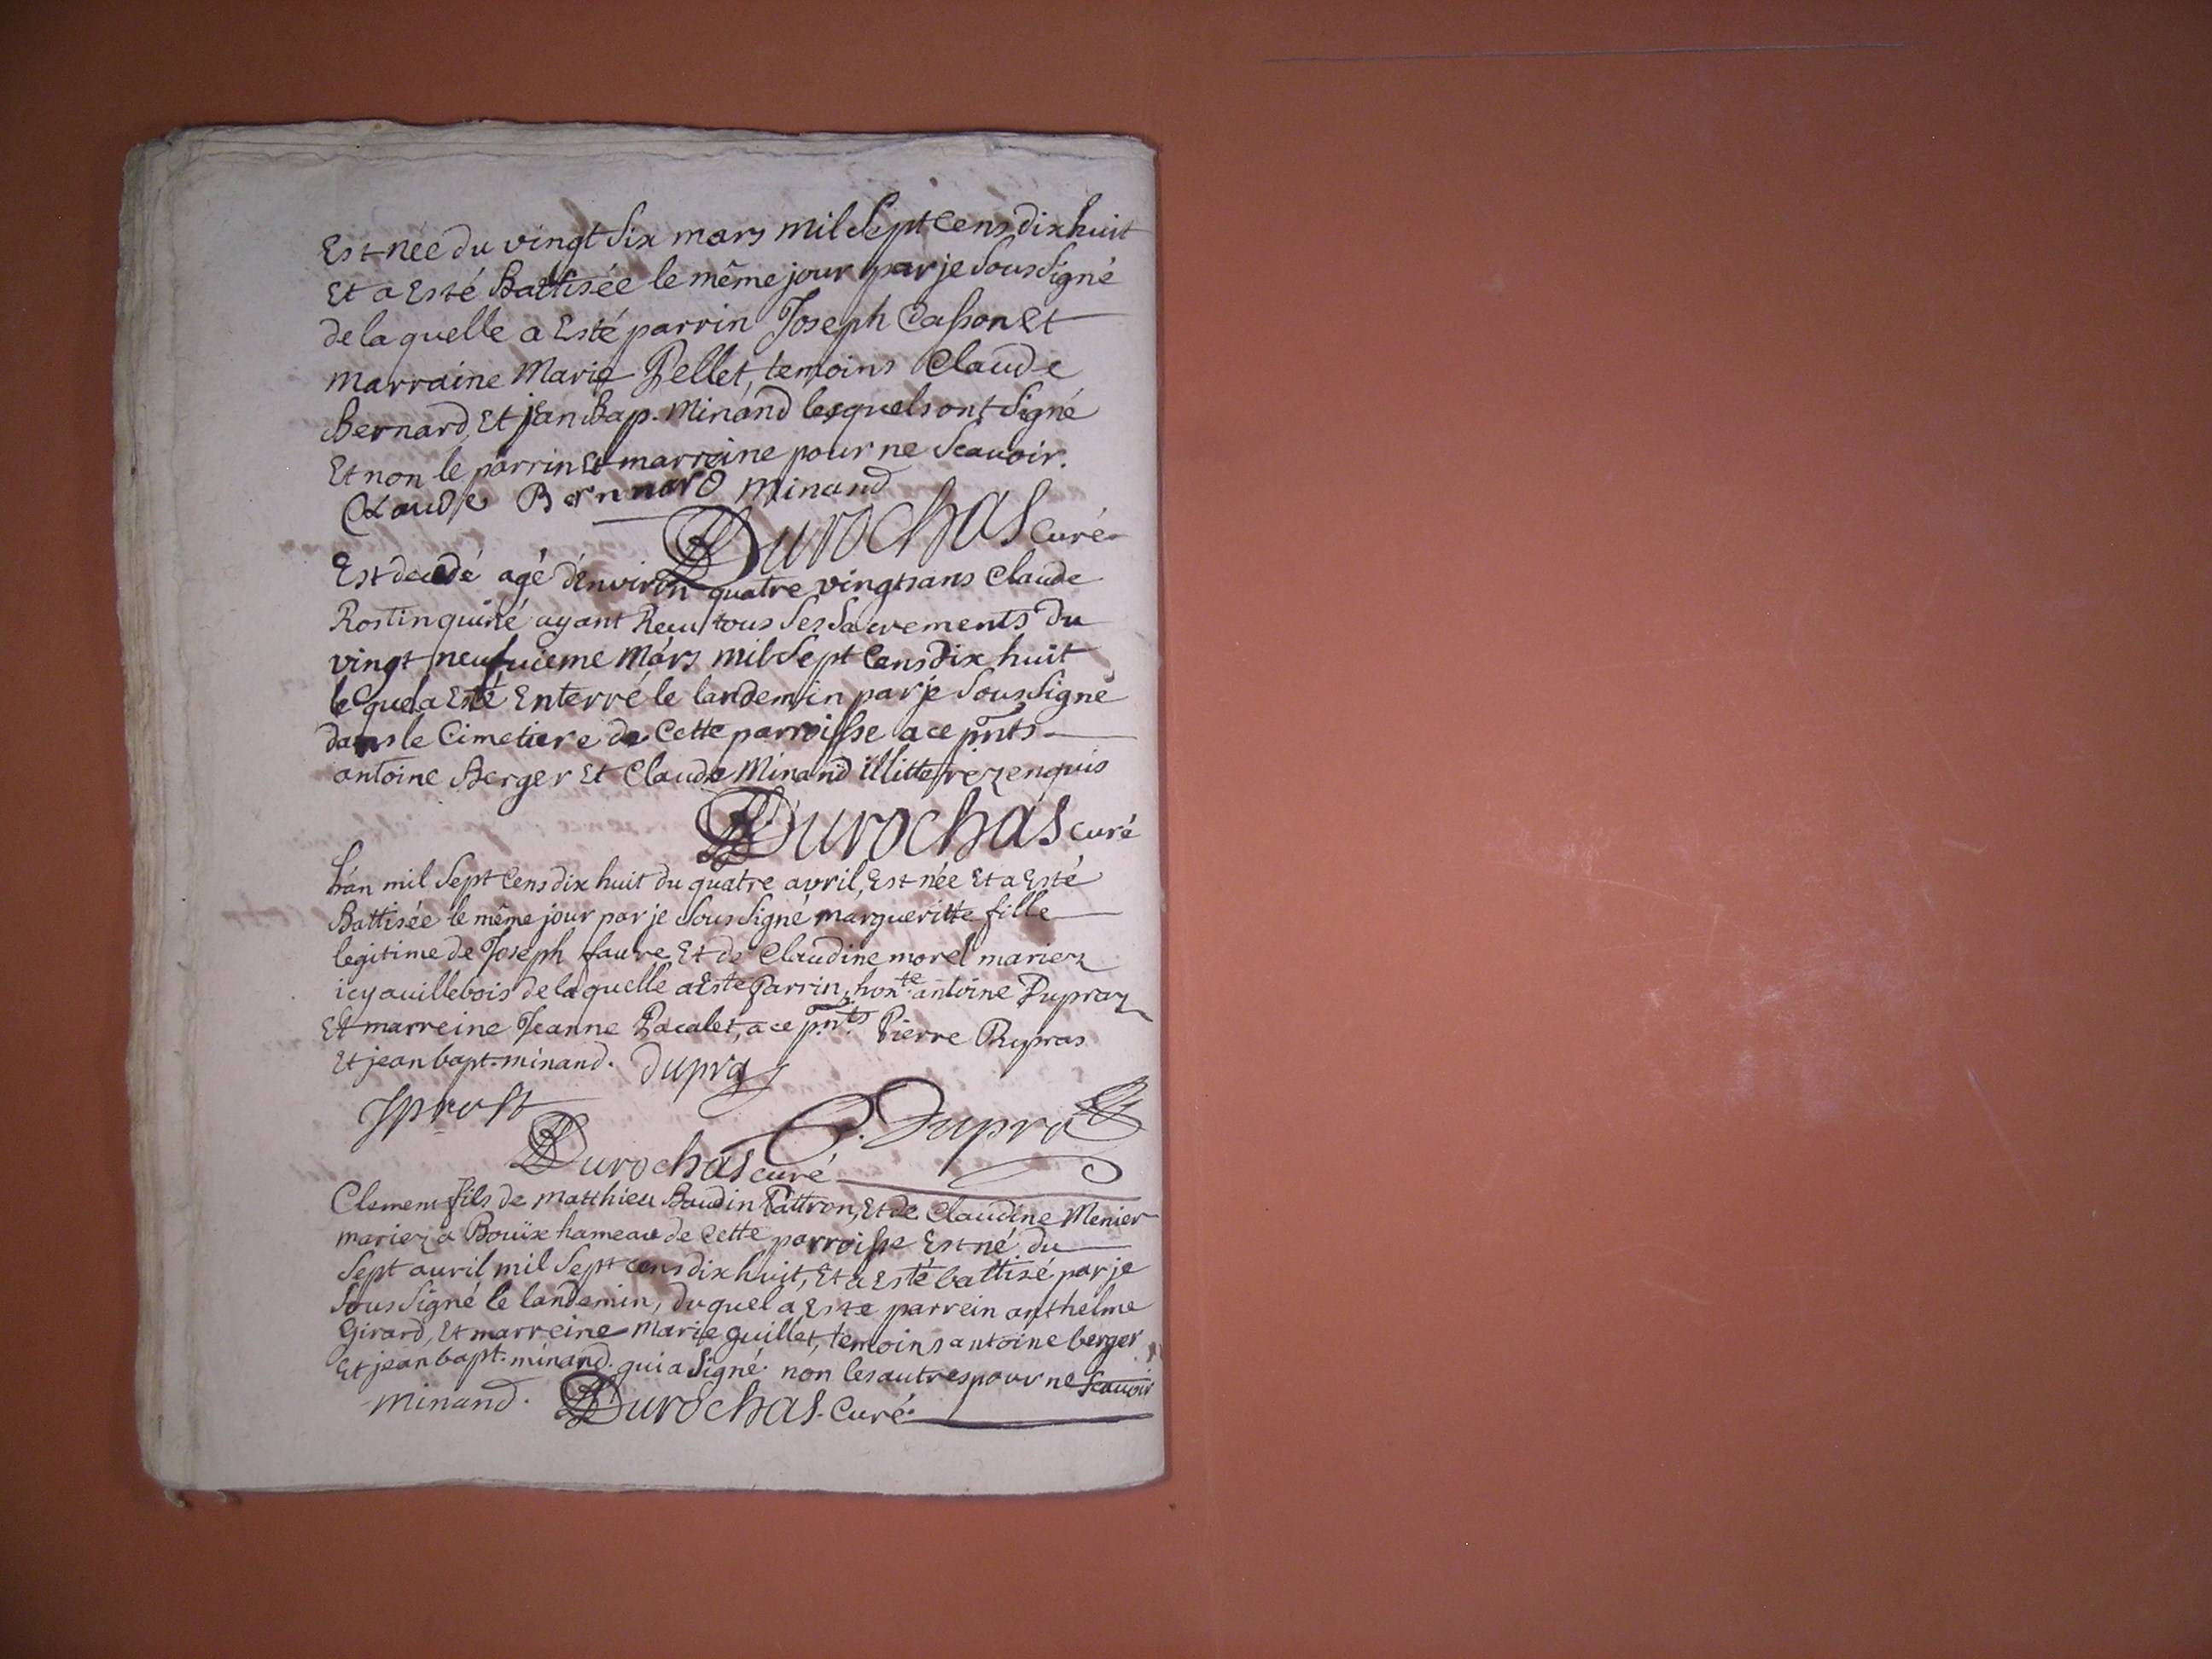 Est née du vingt six mars mil sept cens dix huit
Et a Esté Battisée le même jour par je sous signé
de la quelle a Esté parrin Joseph Casson Et
marraine Marie Pellet, temoins Claude
Bernard, Et jean Bap. Minand lesquels ont signé
Et non le parrin Et marreine pour ne scauoir.
Claude Bernnard minand
Durochas curé
Est decedé agé d'Environ quatre vingts ans Claude
Rostin quiné ayant Recu tous ses sacrements du
vingt neufuieme Mars mil sept Cens dix huit
le quel a Esté Enterré le landemin par je sous signé
dans le Cimetiere de Cette parroisse a ce pnts
antoine Berger Et Claude Minand illitterez enquis
Durochas curé
L'an mil sept cens dix huit du quatre avril, Est née Et a Esté
Battisée le même jour par je sous signé margueritte fille
legitime de Joseph faure Et de Claudine morel mariez
icy auillebois de la quelle a Esté Parrin, hon.te antoine Dupraz
Et marreine Jeanne Pacalet, a ce p.nts Pierre Dupras
Et jean bapt. minand. dupraz
Jprost
P. Dupra
Durochas curé
Clement fils de Matthieu Baudin Pattron, Et de Claudine Menier
mariez a Bouïx hameau de Cette parroisse Est né du
sept auril mil sept cens dix huit, Et a Esté battisé par je
sous signé le landemin, du quel a Esté parrein anthelme
Girard, Et marreine Marie guillet, temoins antoine berger
Et jean bapt. minand. qui a signé. non les autres pour ne scauoir
Minand. Durochas. Curé.